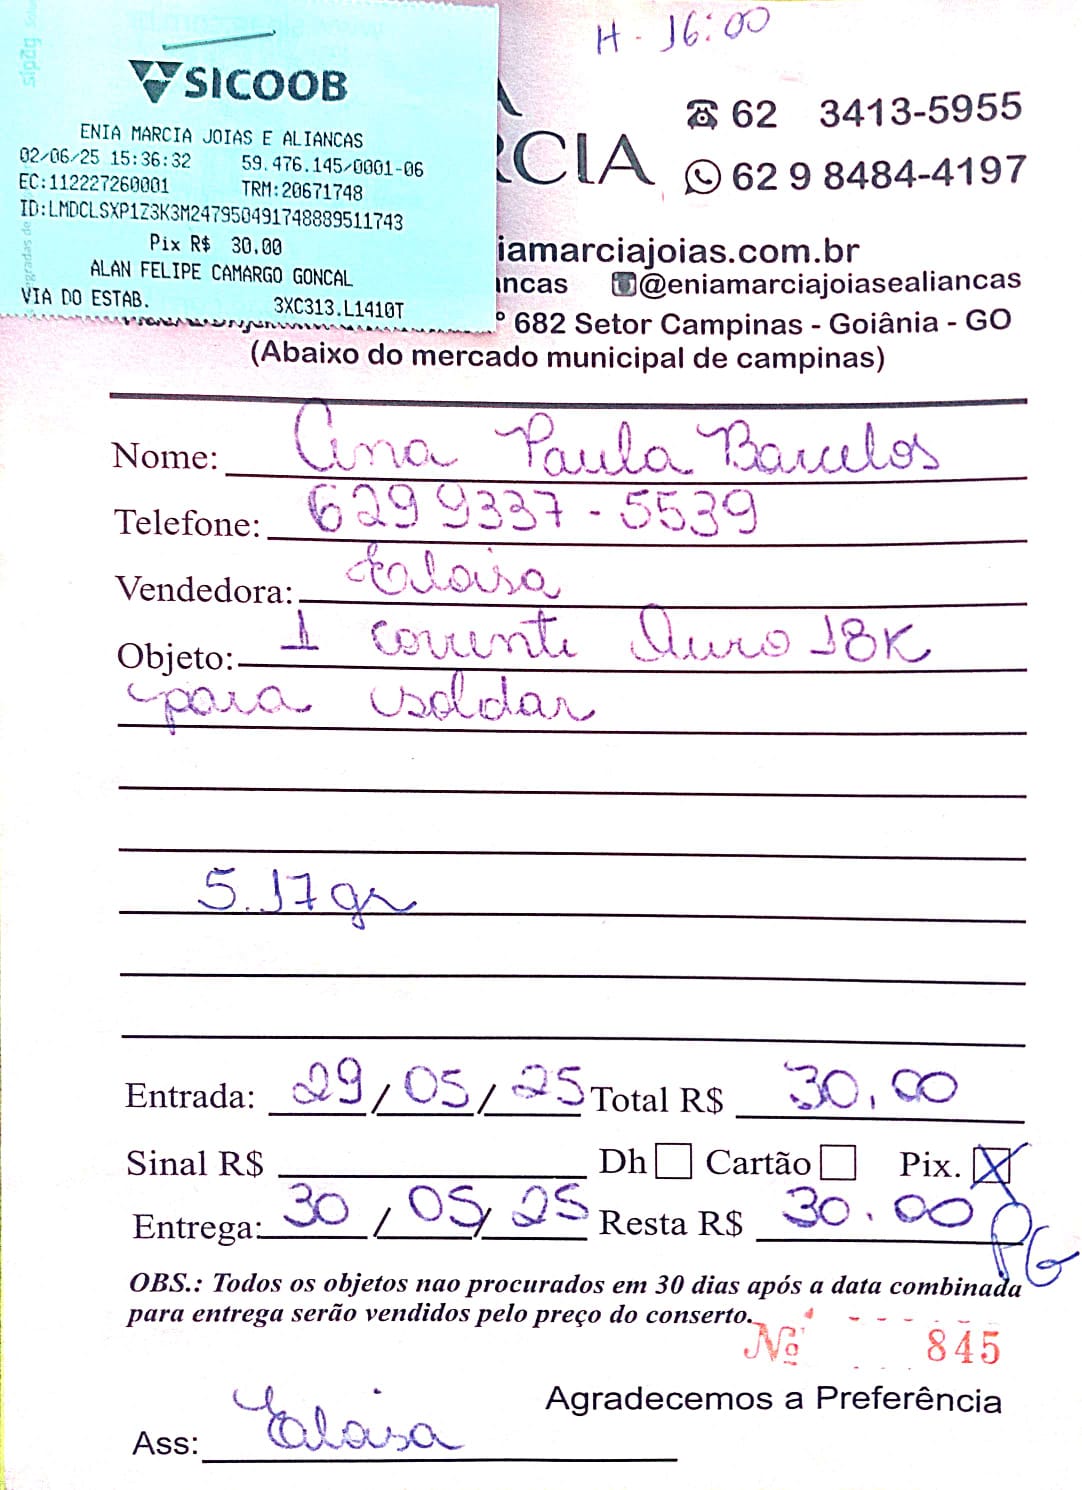 H - 16:00
SICOOB
ENIA MARCIA JOIAS E ALIANCAS
02/06/25 15:36:32 59.476.145/0001-06
EC:112227260001 TRM:20671748
ID:LMDCLSXP1Z3K3M2479504917488895117​43
Pix R$ 30,00
ALAN FELIPE CAMARGO GONCAL
VIA DO ESTAB. 3XC313.L1410T
RCIA
62 3413-5955
62 9 8484-4197
iamarciajoias.com.br
ncas @eniamarciajoiasealiancas
682 Setor Campinas - Goiânia - GO
(Abaixo do mercado municipal de campinas)
Nome: Ana Paula Barcelos
Telefone: 629 9337-5539
Vendedora: Eloisa
Objeto: 1 corrente Ouro 18K
para soldar
5.17gr
Entrada: 29/05/25 Total R$ 30,00
Sinal R$ Dh Cartão Pix. X
Entrega: 30/05/25 Resta R$ 30.00
PG
OBS.: Todos os objetos nao procurados em 30 dias após a data combinada
para entrega serão vendidos pelo preço do conserto.
Nº 845
Agradecemos a Preferência
Ass: Eloisa